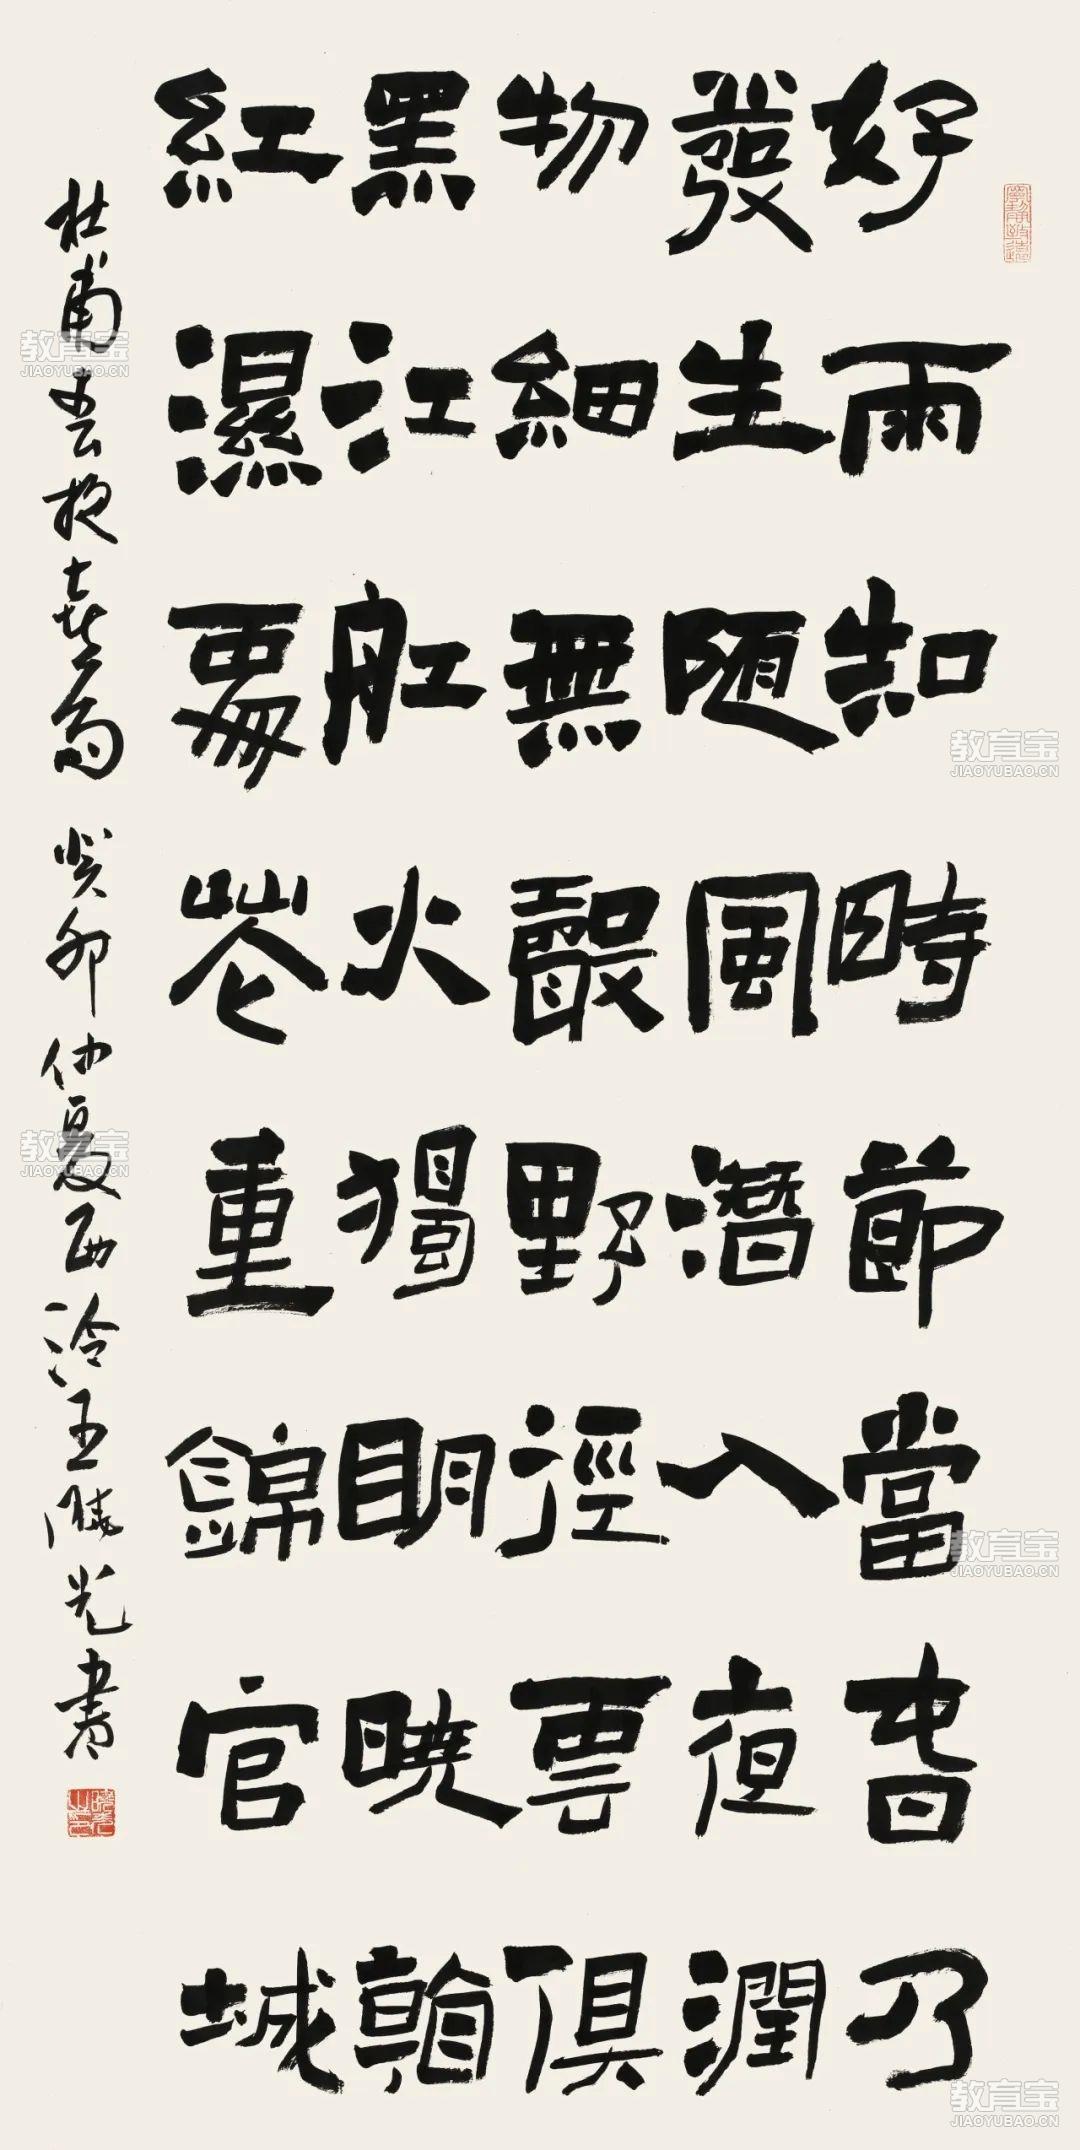 好雨知時節當春乃
發生随風潛入夜潤
物細無聲野徑雲俱
黑江舡火獨明曉看
紅濕處花重錦官城
杜甫春夜喜雨 癸卯仲夏西泠王曉光書
寧靜致遠
教育宝
JIAOYUBAO.CN
教育宝
JIAOYUBAO.CN
教育宝
JIAOYUBAO.CN
教育宝
JIAOYUBAO.CN
教育宝
JIAOYUBAO.CN